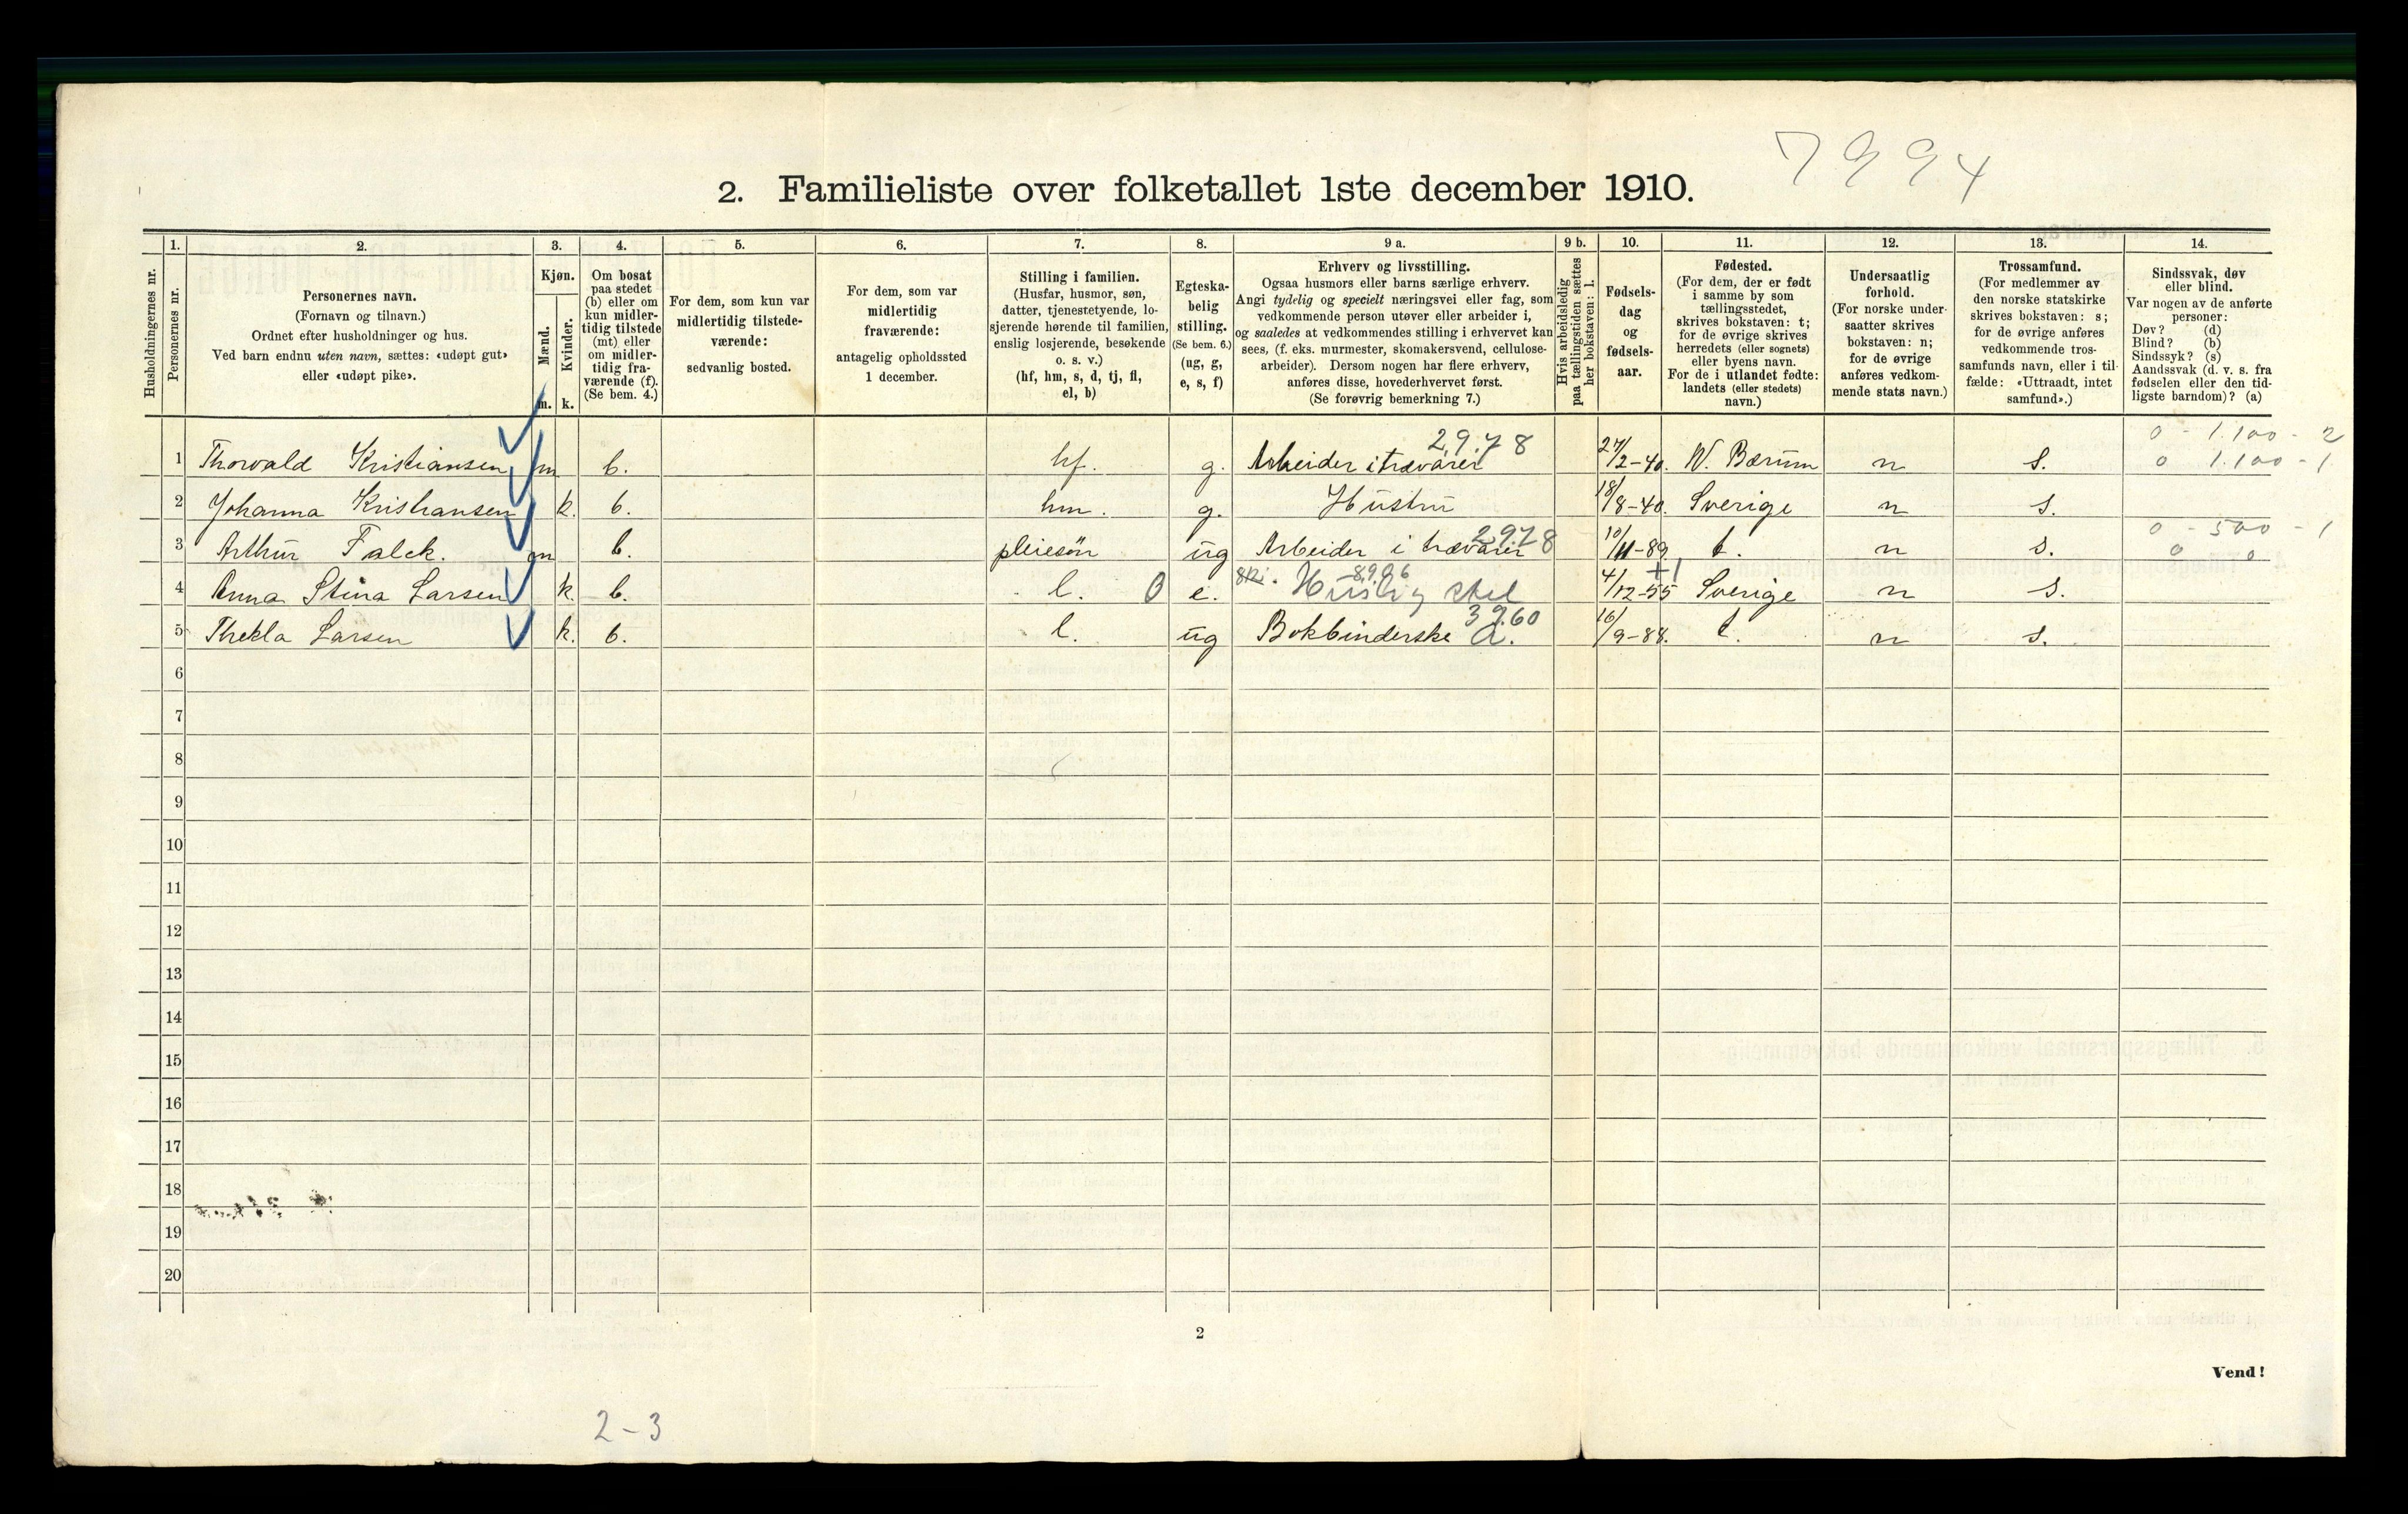 7994
2. Familieliste over folketallet 1ste december 1910.
Husholdningernes nr.
1. Personernes nr.
2.
Personernes navn.
(Fornavn og tilnavn.)
Ordnet efter husholdninger og hus.
Ved barn endnu uten navn, sættes: «udøpt gut»
eller «udøpt pike».
3.
Kjøn.
Mænd.
Kvinder.
m. k.
4.
Om bosat
paa stedet
(b) eller om
kun midler-
tidig tilstede
(mt) eller
om midler-
tidig fra-
værende (f).
(Se bem. 4.)
5.
For dem, som kun var
midlertidig tilstede-
værende:
sedvanlig bosted.
6.
For dem, som var
midlertidig
fraværende:
antagelig opholdssted
1 december.
7.
Stilling i familien.
(Husfar, husmor, søn,
datter, tjenestetyende, lo-
sjerende hørende til familien,
enslig losjerende, besøkende
o. s. v.)
(hf, hm, s, d, tj, fl,
el, b)
8.
Egteska-
belig
stilling.
(Se bem. 6.)
(ug, g,
e, s, f)
9 a.
Erhverv og livsstilling.
Ogsaa husmors eller barns særlige erhverv.
Angi tydelig og specielt næringsvei eller fag, som
vedkommende person utøver eller arbeider i,
og saaledes at vedkommendes stilling i erhvervet kan
sees, (f. eks. murmester, skomakersvend, cellulose-
arbeider). Dersom nogen har flere erhverv,
anføres disse, hovederhvervet først.
(Se forøvrig bemerkning 7.)
9 b.
Hvis arbeidsledig
paa tællingstiden sættes
her bokstaven: l.
10.
Fødsels-
dag
og
fødsels-
aar.
11.
Fødested.
(For dem, der er født
i samme by som
tællingsstedet,
skrives bokstaven: t;
for de øvrige skrives
herredets (eller sognets)
eller byens navn.
For de i utlandet fødte:
landets (eller stedets)
navn.)
12.
Undersaatlig
forhold.
(For norske under-
saatter skrives
bokstaven: n;
for de øvrige
anføres vedkom-
mende stats navn.)
13.
Trossamfund.
(For medlemmer av
den norske statskirke
skrives bokstaven: s;
for de øvrige anføres
vedkommende tros-
samfunds navn, eller i til-
fælde: «Uttraadt, intet
samfund».)
14.
Sindssvak, døv
eller blind.
Var nogen av de anførte
personer:
Døv? (d)
Blind? (b)
Sindssyk? (s)
Aandssvak (d. v. s. fra
fødselen eller den tid-
ligste barndom)? (a)
2978 0 - 1.100 - 2
1 Thorvald Kristiansen m b. hf. g. Arbeider i trævarer 27/2-40. V. Bærum n s. 0 1.100 - 1
2 Johanna Kristiansen k. b. hm. g. Hustru 18/8-40. Sverige n s.
2978 0 - 500 - 1
3 Arthur Falck. m b. pleiesön ug Arbeider i trævarer 10/11-89 t. n s. 0 0
8996 +1
4 Anna Stina Larsen k. b. l. 0 e. Huslig stel 4/12-55 Sverige n s.
3960
5 Thekla Larsen k. b. l. ug Bokbinderske a. 16/9-88. t. n s.
6
7
8
9
10
11
12
13
14
15
16
17
18
19
20
2
Vend!
2-3